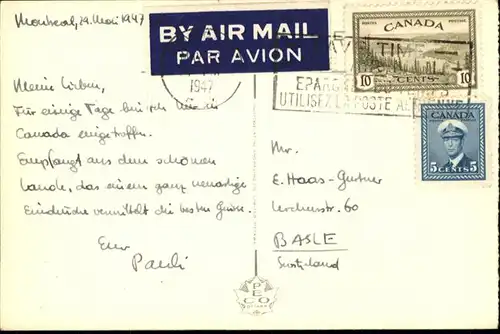 Montreal, 29. Mai 1947
BY AIR MAIL
PAR AVION
1947
SAVE TIME
EPARG
UTILISEZ LA POSTE AERIENNE
POSTES POSTAGE
CANADA
10 CENTS 10
CANADA
5 CENTS 5
Meine Lieben,
Für einige Tage bin ich
Canada eingetroffen.
Empfangt aus dem schönen
Lande, das einem ganz neuartige
Eindrücke vermittelt die besten Grüsse.
Euer
Pauli
Mr.
E. Haas-Gurtner
Lerchenstr. 60
BASLE
Switzerland
PECO